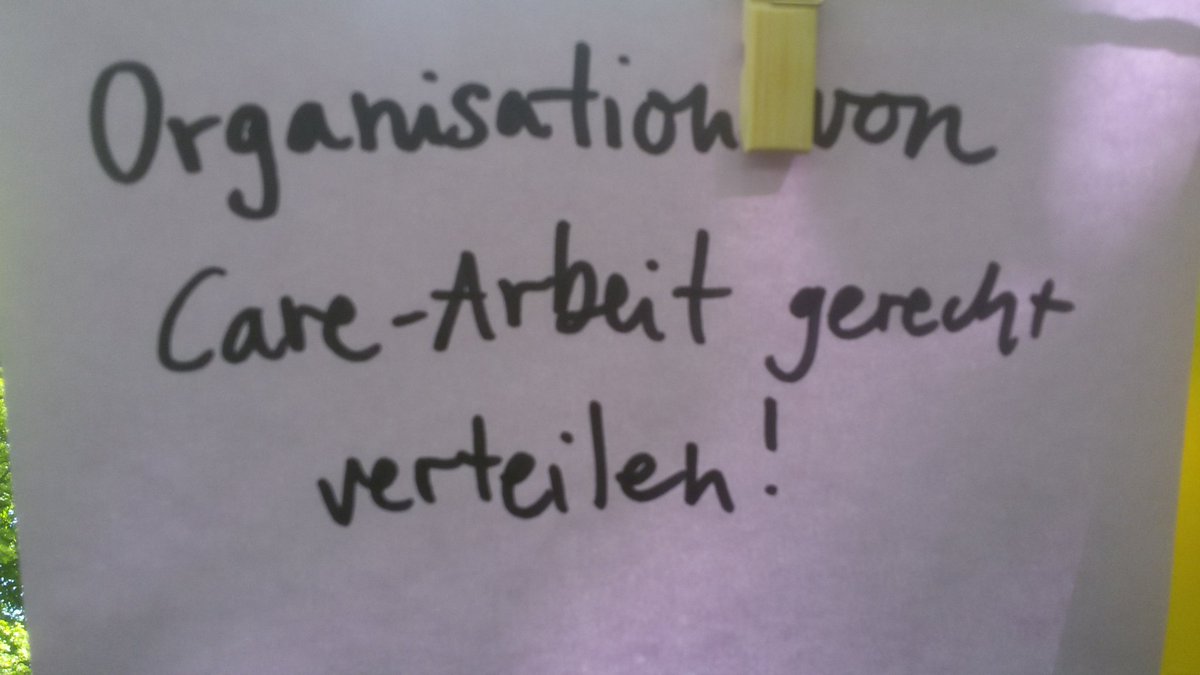 Organisation von
Care-Arbeit gerecht
verteilen!